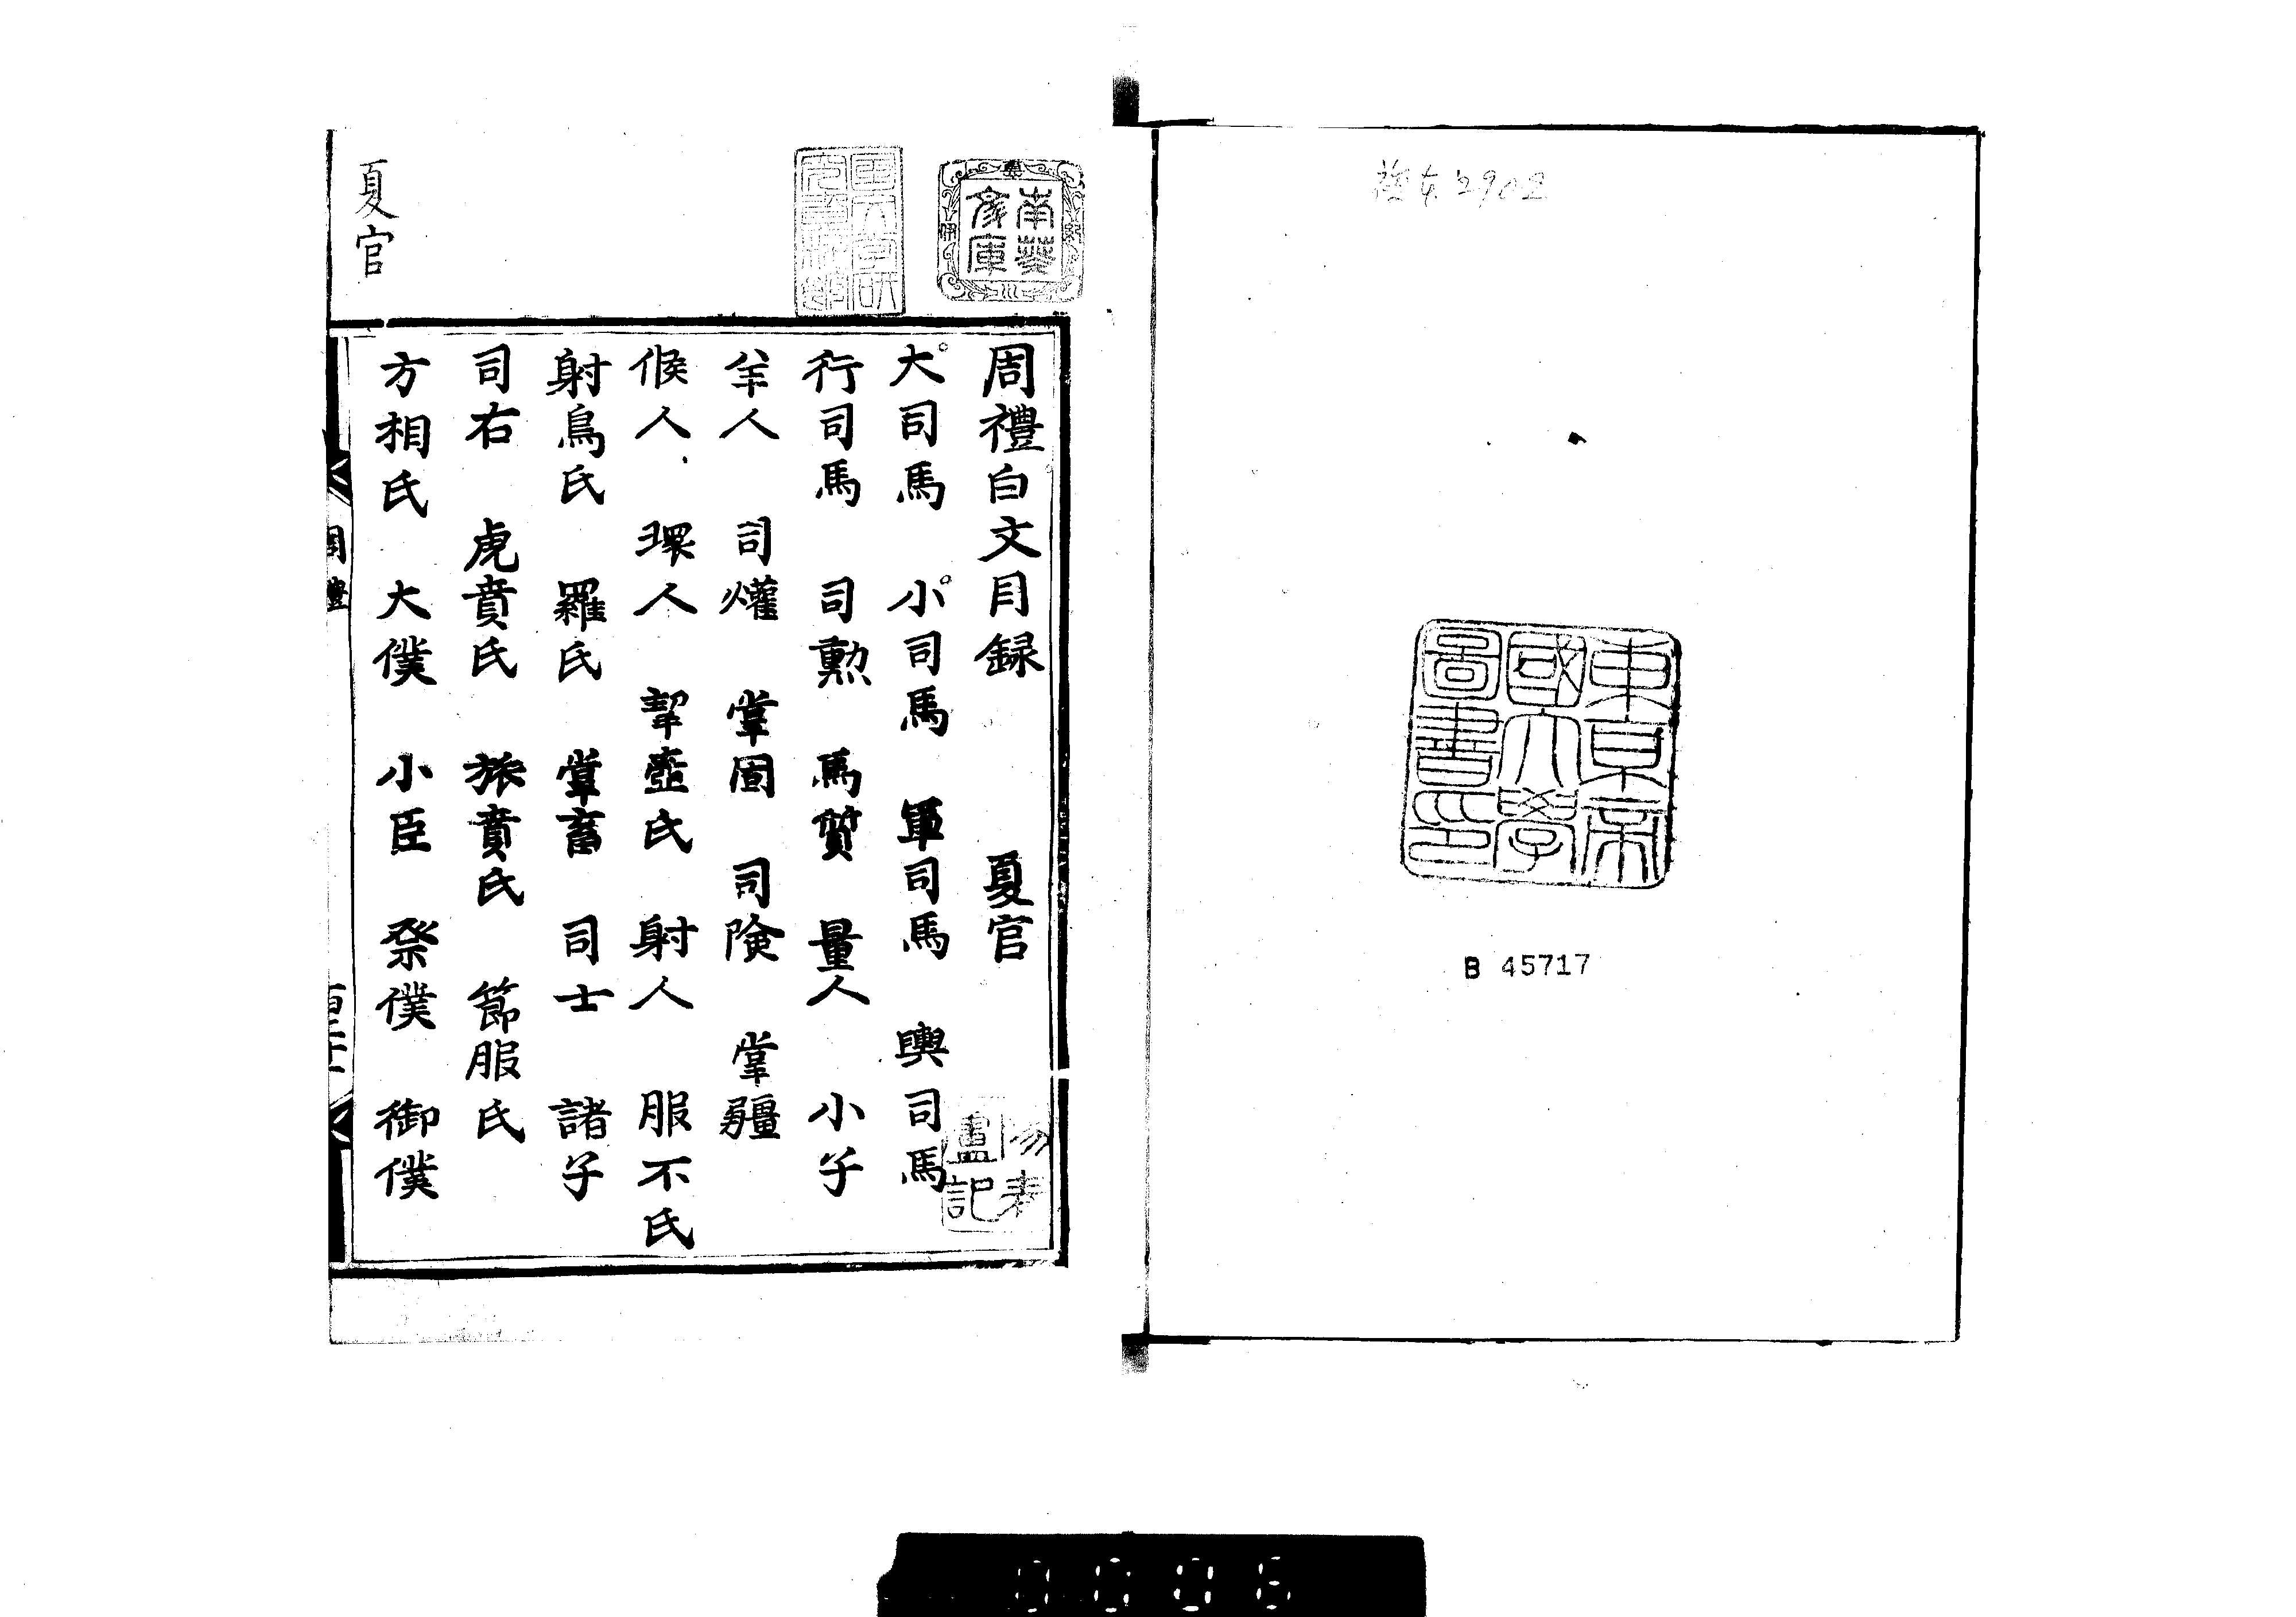 B 45717
東京帝
國大學
圖書印
南葵
文庫
夏官
周禮白文目録 夏官
大司馬 小司馬 軍司馬 輿司馬
行司馬 司勲 馬質 量人 小子
羊人 司爟 掌固 司険 掌疆
候人 環人 挈壺氏 射人 服不氏
射鳥氏 羅氏 掌畜 司士 諸子
司右 虎賁氏 旅賁氏 節服氏
方相氏 大僕 小臣 祭僕 御僕
周禮